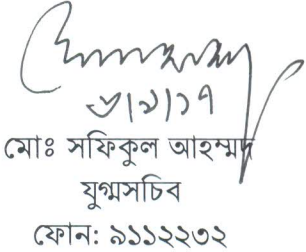 ৬/৯/১৭
মোঃ সফিকুল আহম্মদ
যুগ্মসচিব
ফোন: ৯১১২২৩২